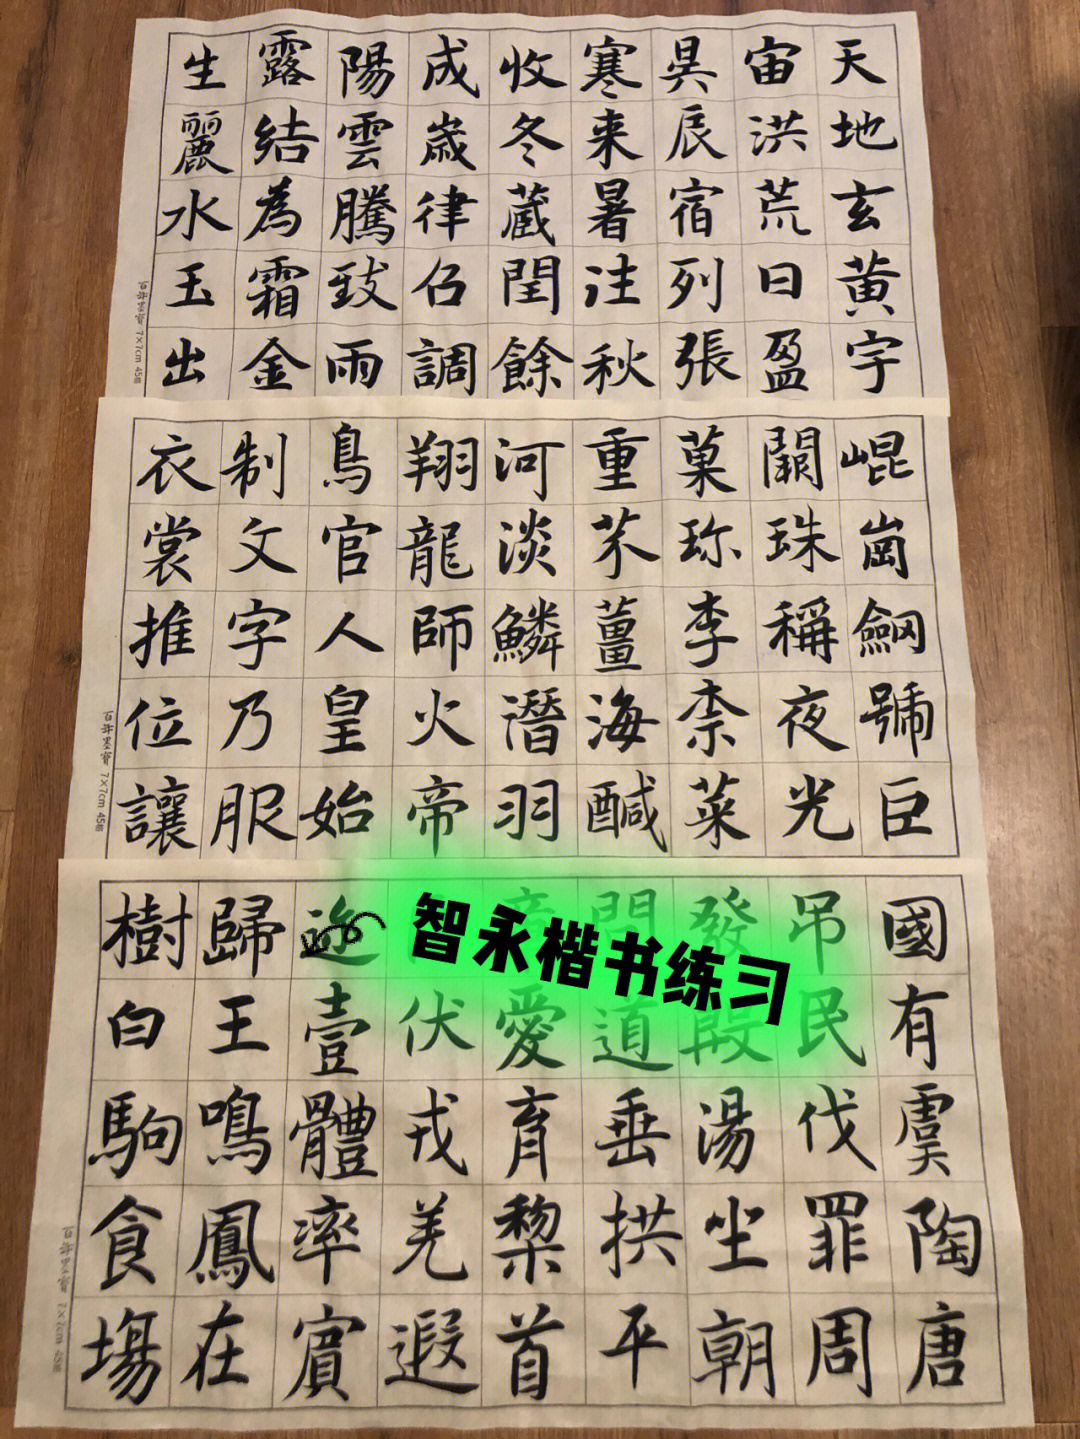 天地玄黄宇
宙洪荒日盈
昃辰宿列張
寒来暑往秋
收冬蔵閏餘
成歳律召調
陽雲騰致雨
露結為霜金
生麗水玉出
百年墨寶 7×7cm 45格
崐崗劒號巨
闕珠稱夜光
菓珎李柰菜
重芥薑海醎
河淡鱗潛羽
翔龍師火帝
鳥官人皇始
制文字乃服
衣裳推位讓
百年墨寶 7×7cm 45格
國有虞陶唐
吊民伐罪周
發殷湯坐朝
問道垂拱平
章愛育黎首
伏戎羌遐
迩壹體率賓
歸王鳴鳳在
樹白駒食場
百年墨寶 7×7cm 45格
智永楷书练习